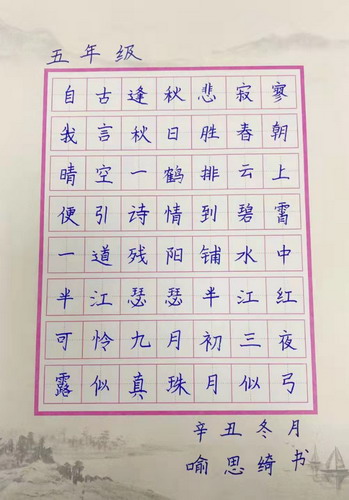 五年级
自古逢秋悲寂寥
我言秋日胜春朝
晴空一鹤排云上
便引诗情到碧霄
一道残阳铺水中
半江瑟瑟半江红
可怜九月初三夜
露似真珠月似弓
辛丑冬月
喻思绮书